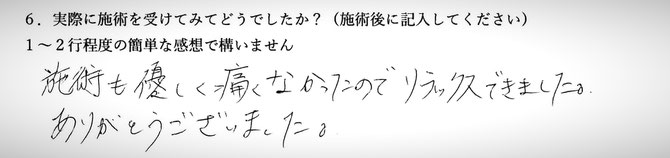 6．実際に施術を受けてみてどうでしたか？（施術後に記入してください）
1～2行程度の簡単な感想で構いません
施術も優しく痛くなかったのでリラックスできました。
ありがとうございました。